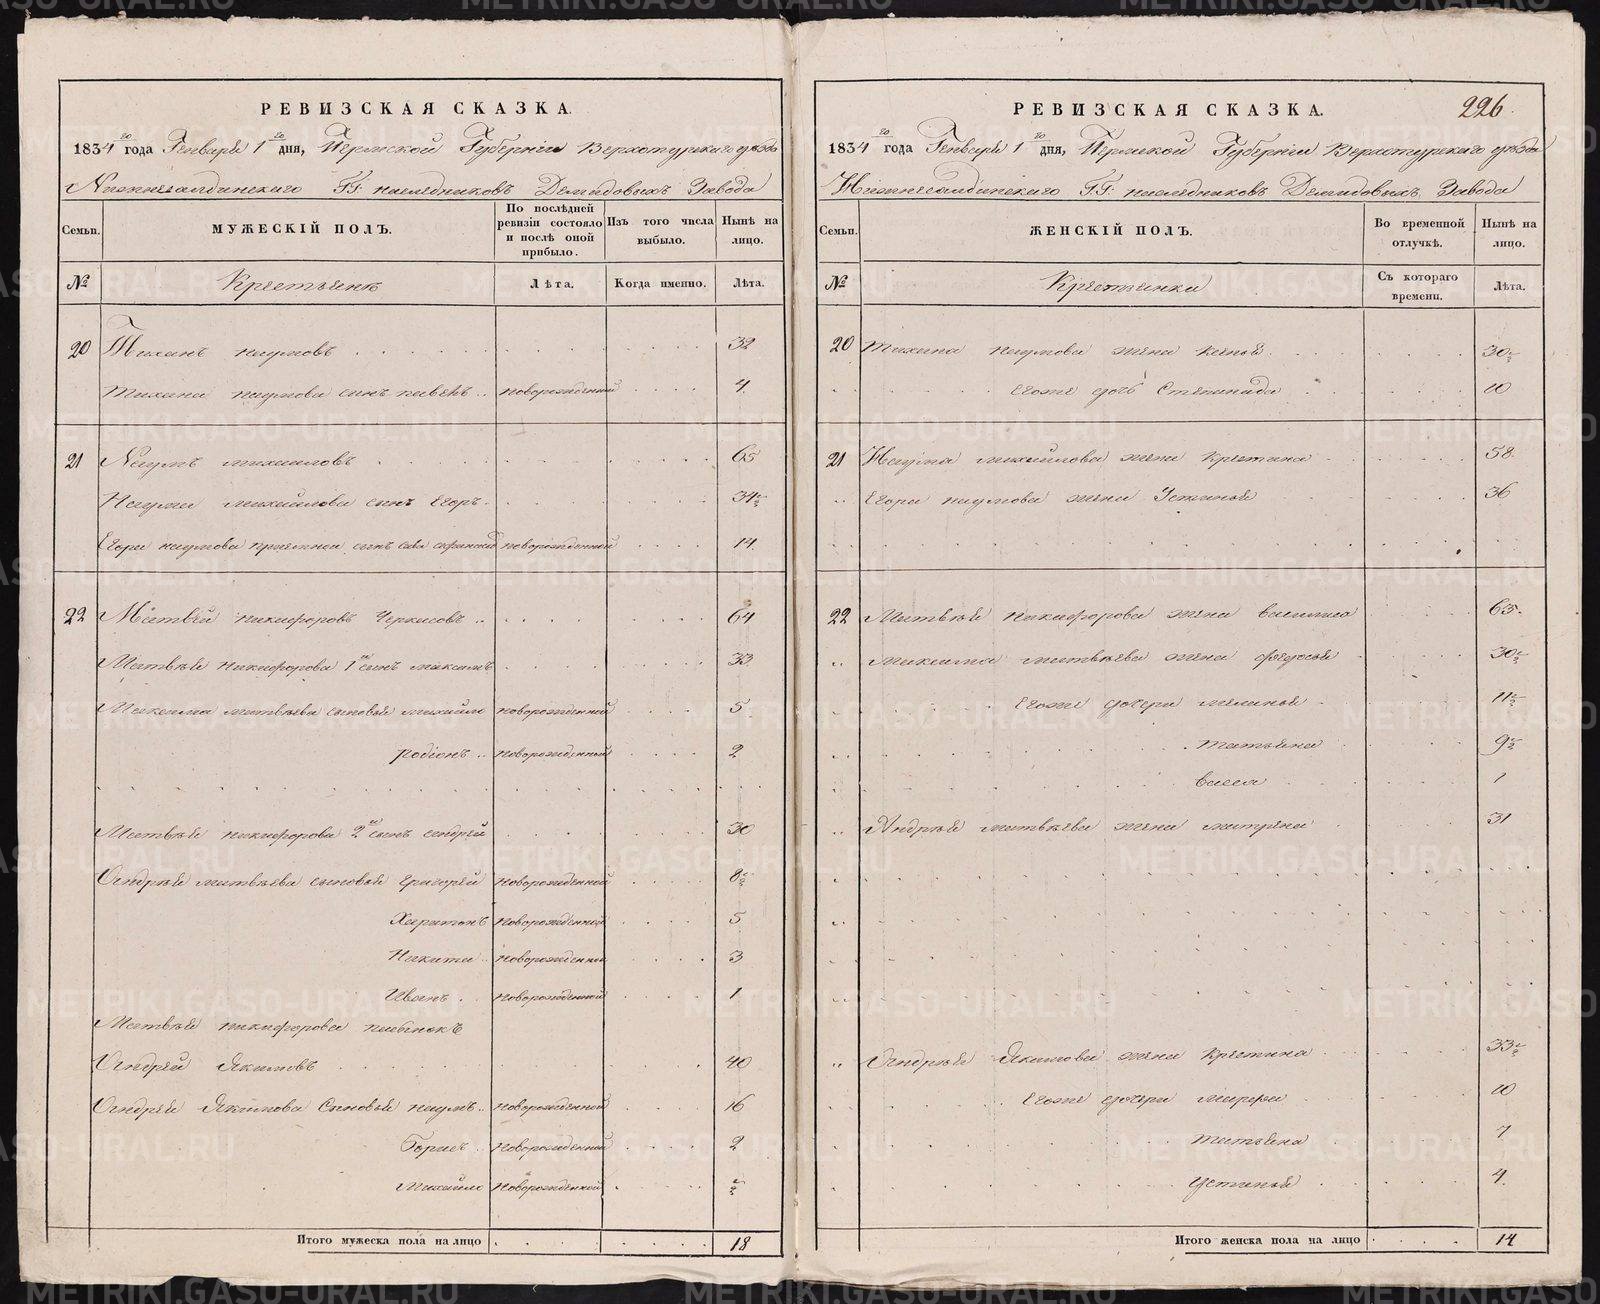 РЕВИЗСКАЯ СКАЗКА.
1834го года Генваря 1го дня, Пермской Губернии Верхотурского уезда
Нижнесалдинского Г.Г: наследниковъ Демидовыхъ Завода
Семьи. МУЖЕСКІЙ ПОЛЪ. По послѣдней ревизіи состояло и послѣ оной прибыло. Изъ того числа выбыло. Нынѣ на лицо.
№ Крестьянъ Лѣта. Когда именно. Лѣта.
20 Тиханъ наумовъ 32
Тихана наумова сынъ павелъ новорожденной 4
21 Наумъ михаиловъ 65
Наума михаилова сынъ Егоръ 34½
Егора наумова сынъ новорожденной 14
22 Матвей никифоровъ Черкасовъ 64
Матвѣя никифорова 1й сынъ максимъ 33
Максима матвѣева сыновья михайло новорожденной 5
родіонъ новорожденной 2
Матвѣя никифорова 2й сынъ андрей 30
Андрѣя матвѣева сыновья григорей новорожденной 8½
Харитонъ новорожденной 5
Никита новорожденной 3
Иванъ новорожденной 1
Матвѣя никифорова
Андрей Якимовъ 40
Андрея Якимова Сыновья наумъ новорожденной 16
новорожденной 2
михайло новорожденной ½
Итого мужеска пола на лицо 18
226.
РЕВИЗСКАЯ СКАЗКА.
1834го года Генваря 1го дня, Пермской Губернии Верхотурскаго уезда
Нижнесалдинского Г.Г: наследниковъ Демидовыхъ Завода
Семьи. ЖЕНСКІЙ ПОЛЪ. Во временной отлучкѣ. Нынѣ на лицо.
№ Крестьянки Съ котораго времени. Лѣта.
20 Тихана наумова жена 30½
Егоже дочь Степанида 10
21 Наума михайлова жена 58
Егора наумова жена Устинья 36
22 Матвѣя никифорова жена василиса 65
Максима матвѣева жена федосья 30½
Егоже дочери меланья 11½
татьяна 9½
васса 1
Андрѣя матвѣева жена матрена 31
Андрѣя Якимова жена 33½
Егоже дочери марфа 10
татьяна 7
устинья 4
Итого женска пола на лицо 14
METRIKI.GASO-URAL.RU